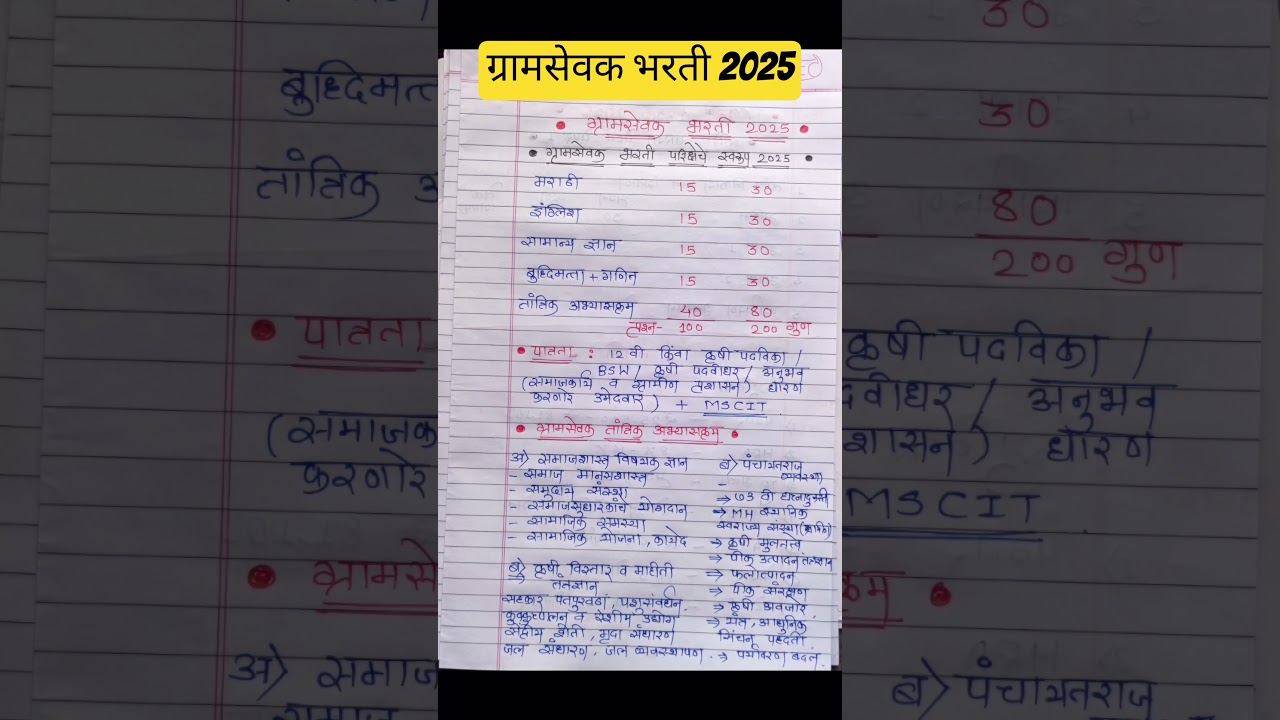 ग्रामसेवक भरती 2025
• ग्रामसेवक भरती 2025 •
• ग्रामसेवक भरती परिक्षेचे स्वरूप 2025 •
मराठी 15 30
इंग्लिश 15 30
सामान्य ज्ञान 15 30
बुध्दिमत्ता + गणित 15 30
तांत्रिक अभ्यासक्रम 40 80
प्रश्न- 100 200 गुण
• पात्रता : 12 वी किंवा कृषी पदविका /
BSW / कृषी पदवीधर / अनुभव
(समाजकार्य व ग्रामीण प्रशासन) धारण
करणारे उमेदवार) + MSCIT
• ग्रामसेवक तांत्रिक अभ्यासक्रम •
अ) समाजशास्त्र विषयक ज्ञान
- समाज मानसशास्त्र
- समुदाय संस्था
- समाजसुधारकांचे योगदान
- सामाजिक समस्या
- सामाजिक योजना, कायदे
ब) कृषी विस्तार व माहिती
→ तंत्रज्ञान
सहकार पतपुरवठा, पशुसंवर्धन
कुक्कुटपालन व रेशीम उद्योग
सेंद्रीय शेती, मृदा संधारण
जल संधारण, जल व्यवस्थापन
ब) पंचायतराज
- व्यवस्था
→ 73 वी घटनादुरुस्ती
→ MH स्थानिक
स्वराज्य संस्था
→ कृषी मुलतत्वे
→ पीक उत्पादन तंत्रज्ञान
→ फलोत्पादन
→ पीक संरक्षण
→ कृषी अवजारे
→ यंत्रे, आधुनिक
सिंचन पध्दती
→ पर्यावरण बदल